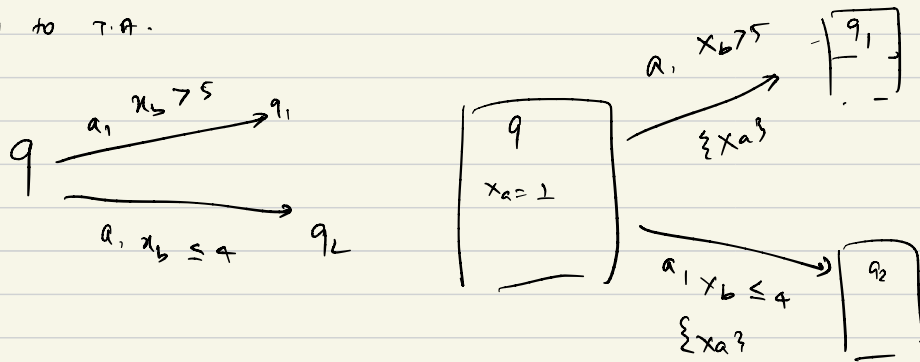 to T.A.
a, x_b > 5
q
q_1
a, x_b ≤ 4
q_2
q
x_a = 1
a, x_b > 5
{x_a}
q_1
a, x_b ≤ 4
{x_a}
q_2